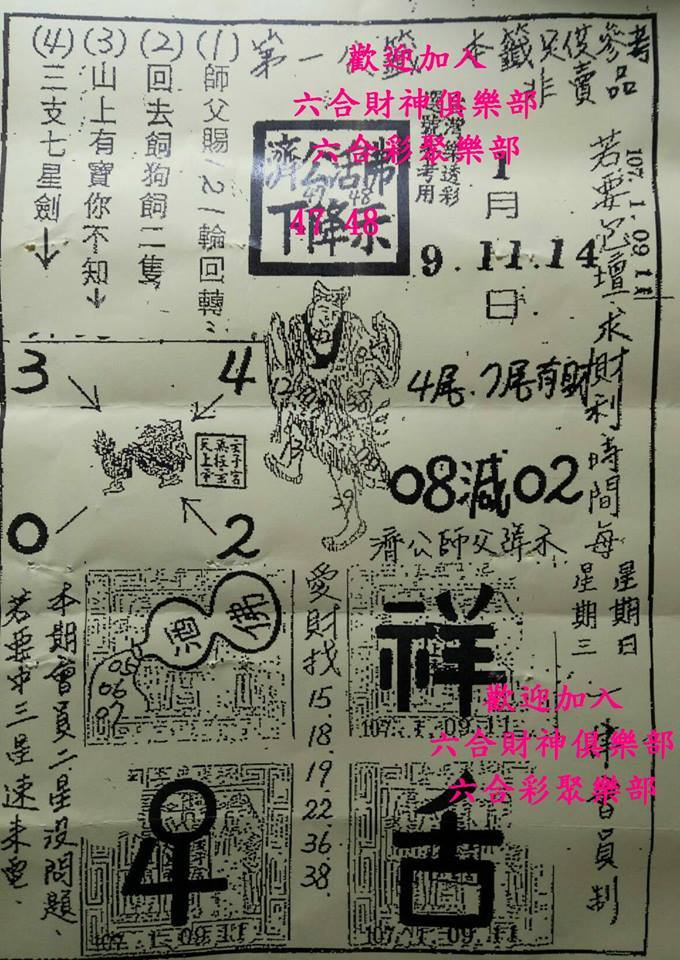 歡迎加入
六合財神俱樂部
六合彩聚樂部
47 48
第一
本籤只供參考
非賣品
(1)師父賜121輪回轉
(2)回去飼狗飼二隻
(3)山上有寶你不知↓
(4)三支七星劍↓
濟公活佛
47 48
下降示
1月
9.11.14
日
107.1.09.11
若要
壇求財利時間每
星期三
星期日
一律會員制
4尾.7尾有財
08減02
濟公師父降示
3
4
0
2
愛財找
15.
18.
19
22
36
38.
佛
酒
05
06
07
祥
107.1.09.11
吉
107.1.09.11
本期會員二星沒問題、
若要中三星速來電、
歡迎加入
六合財神俱樂部
六合彩聚樂部